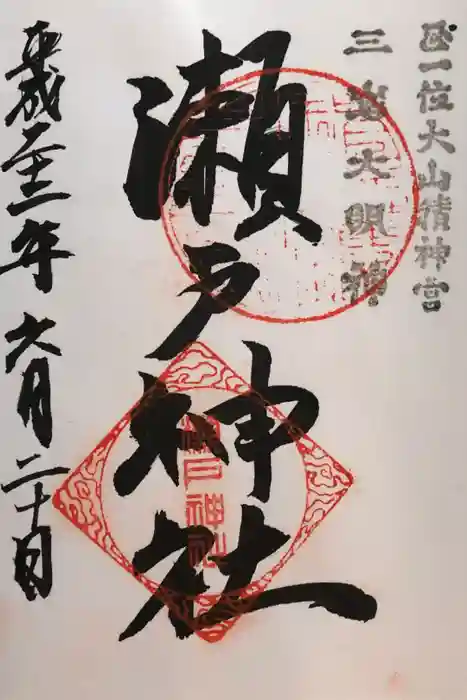 正一位大山積神宮
三島大明神
瀬戸神社
平成二十二年六月二十日
瀬戸神社